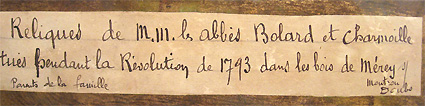 Reliques de M.M. les abbés Bolard et Charmoille
tués pendant la Révolution de 1793 dans les bois de Mérey s/
Parents de la famille
Montron
Doubs